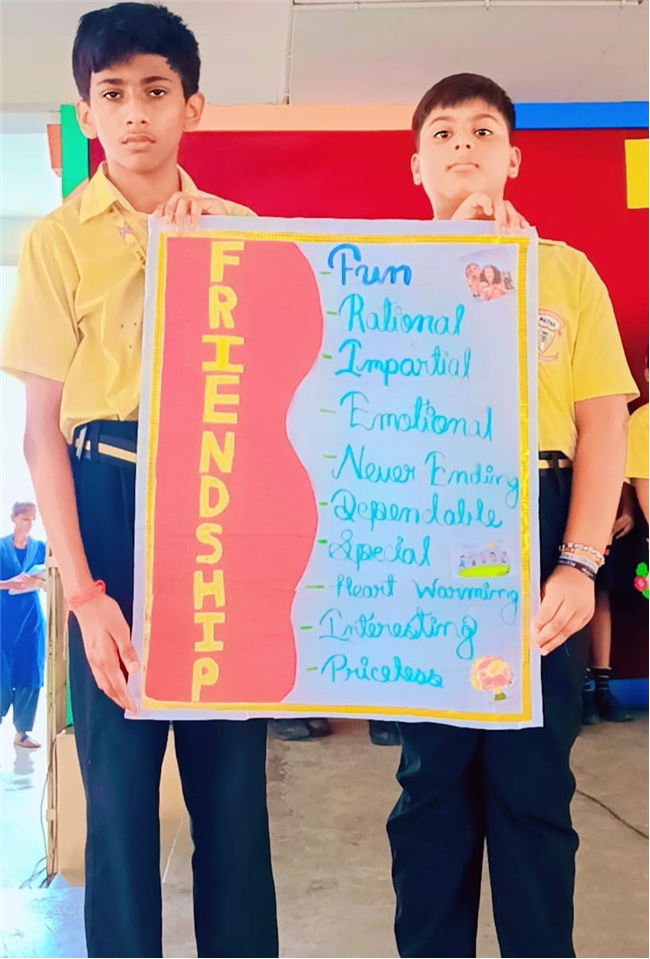 FRIENDSHIP
- Fun
- Rational
- Impartial
- Emotional
- Never Ending
- Dependable
- Special
- Heart Warming
- Interesting
- Priceless